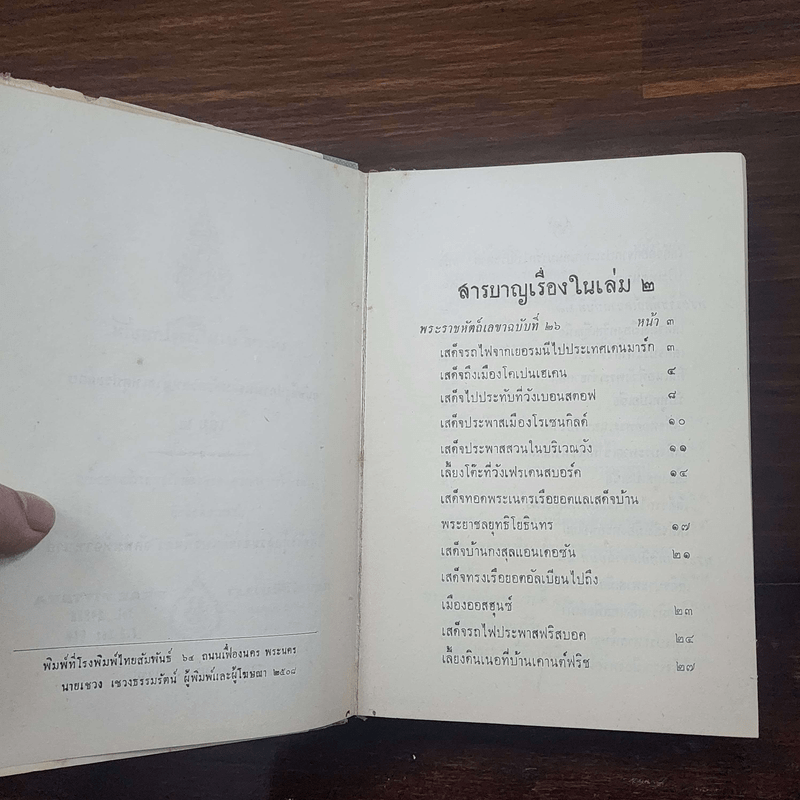 พิมพ์ที่โรงพิมพ์ไทยสัมพันธ์ ๖๔ ถนนเฟื่องนคร พระนคร
นายเชวง เชวงธรรมรัตน์ ผู้พิมพ์และผู้โฆษณา ๒๕๐๘
สารบาญเรื่องในเล่ม ๒
พระราชหัตถ์เลขาฉบับที่ ๒๖ หน้า ๓
เสด็จรถไฟจากเยอรมนีไปประเทศเดนมาร์ก ๓
เสด็จถึงเมืองโคเปนเฮเคน ๔
เสด็จไปประทับที่วังเบอนสตอฟ ๘
เสด็จประพาสเมืองโรเซนกิลด์ ๑๐
เสด็จประพาสสวนในบริเวณวัง ๑๑
เลี้ยงโต๊ะที่วังเฟรเดนสบอร์ค ๑๔
เสด็จทอดพระเนตรเรือยอตแลเสด็จบ้าน
พระยาชลยุทธิโยธินทร ๑๗
เสด็จบ้านกงสุลแอนเดอซัน ๒๑
เสด็จทรงเรือยอตอัลเบียนไปถึง
เมืองออสฮุนซ์ ๒๓
เสด็จรถไฟประพาสฟริสบอค ๒๔
เลี้ยงดินเนอที่บ้านเคานต์ฟริช ๒๗